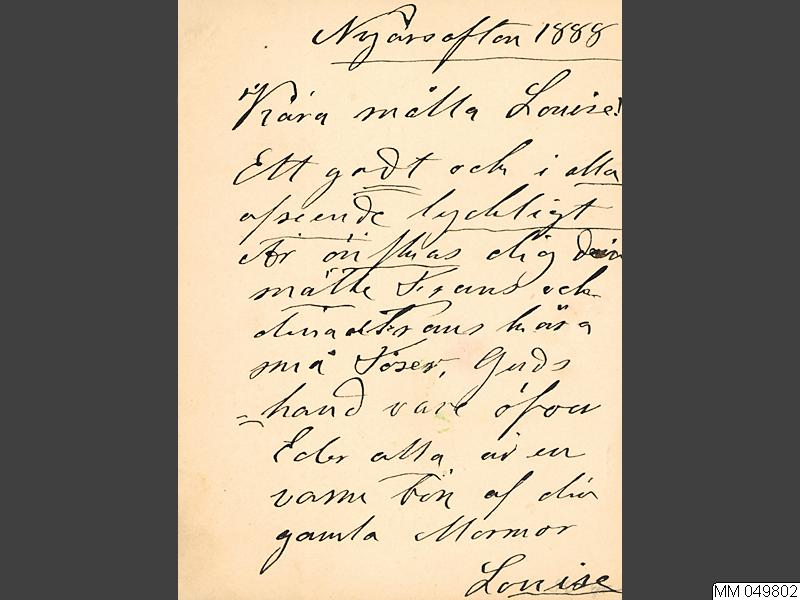 Nyårsafton 1888
Kära målla Louise!
Ett godt och i alla
afseende lyckligt
År önskas dig din
målle Frans och
dina Frans kära
små Töser, Guds
hand vare öfver
Eder alla är en
varm bön af din
gamla Mormor
Louise
MM 049802